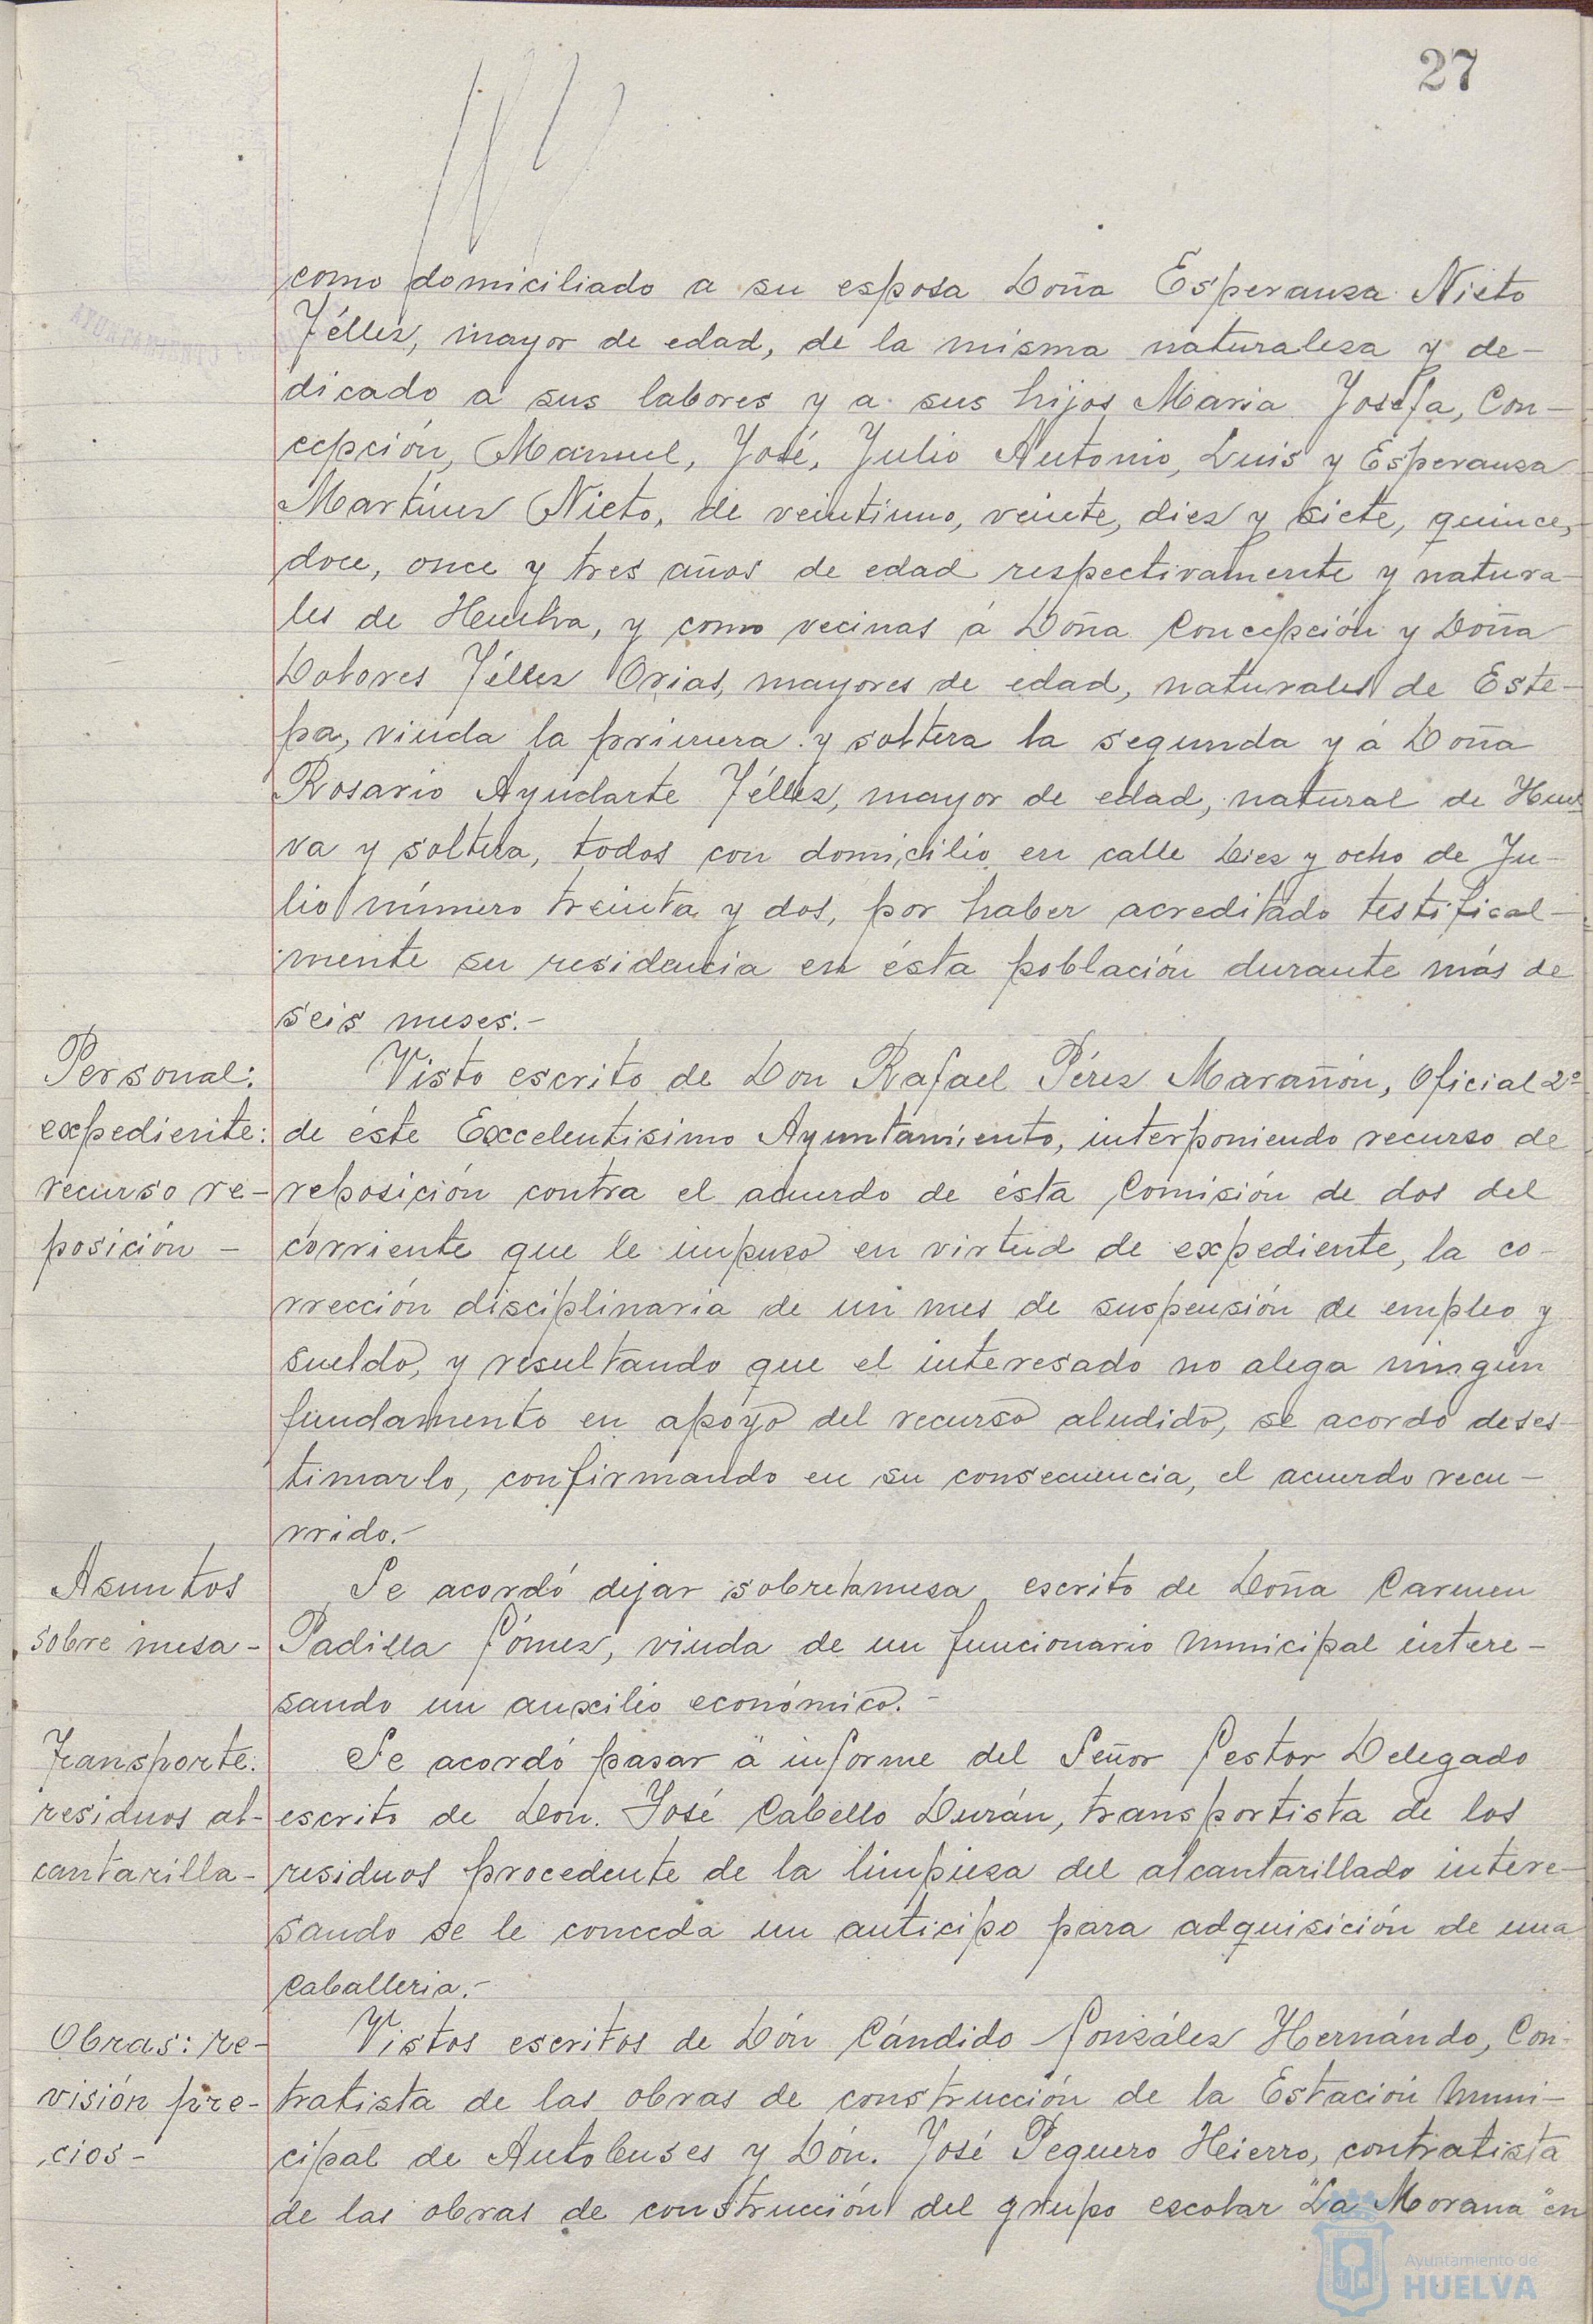 27
como domiciliado a su esposa Doña Esperanza Nieto
Téllez, mayor de edad, de la misma naturaleza y de-
dicado a sus labores y a sus hijos Maria Josefa, Con-
cepción, Manuel, José, Julio Antonio, Luis y Esperanza
Martínez Nieto, de veintiuno, veinte, diez y siete, quince,
doce, once y tres años de edad respectivamente y natura-
les de Huelva, y como vecinas á Doña Concepción y Doña
Dolores Téllez Orias, mayores de edad, naturales de Este-
pa, viuda la primera y soltera la segunda y á Doña
Rosario Ayudarte Téllez, mayor de edad, natural de Huel
va y soltera, todos con domicilio en calle Diez y ocho de Ju-
lio número treinta y dos, por haber acreditado testifical-
mente su residencia en ésta población durante más de
seis meses.-
Personal:
expediente:
recurso re-
posición -
Visto escrito de Don Rafael Pérez Marañón, Oficial 2º
de éste Excelentisimo Ayuntamiento, interponiendo recurso de
reposición contra el acuerdo de ésta Comisión de dos del
corriente que le impuso en virtud de expediente, la co-
rrección disciplinaria de un mes de suspensión de empleo y
sueldo, y resultando que el interesado no alega ningún
fundamento en apoyo del recurso aludido, se acordó deses-
timarlo, confirmando en su consecuencia, el acuerdo recu-
rrido.-
Asuntos
sobre mesa-
Se acordó dejar sobre la mesa escrito de Doña Carmen
Padilla Gómez, viuda de un funcionario municipal intere-
sando un auxilio económico.-
Transporte:
residuos al-
cantarilla-
Se acordó pasar á informe del Señor Gestor Delegado
escrito de Don. José Cabello Durán, transportista de los
residuos procedente de la limpieza del alcantarillado intere-
sando se le conceda un anticipo para adquisición de una
caballeria.-
Obras: re-
visión pre-
cios-
Vistos escritos de Dón Cándido González Hernándo, Con-
tratista de las obras de construcción de la Estación Muni-
cipal de Autobuses y Dón. José Peguero Hierro, contratista
de las obras de construcción del grupo escolar "La Morana" en
Ayuntamiento de
HUELVA